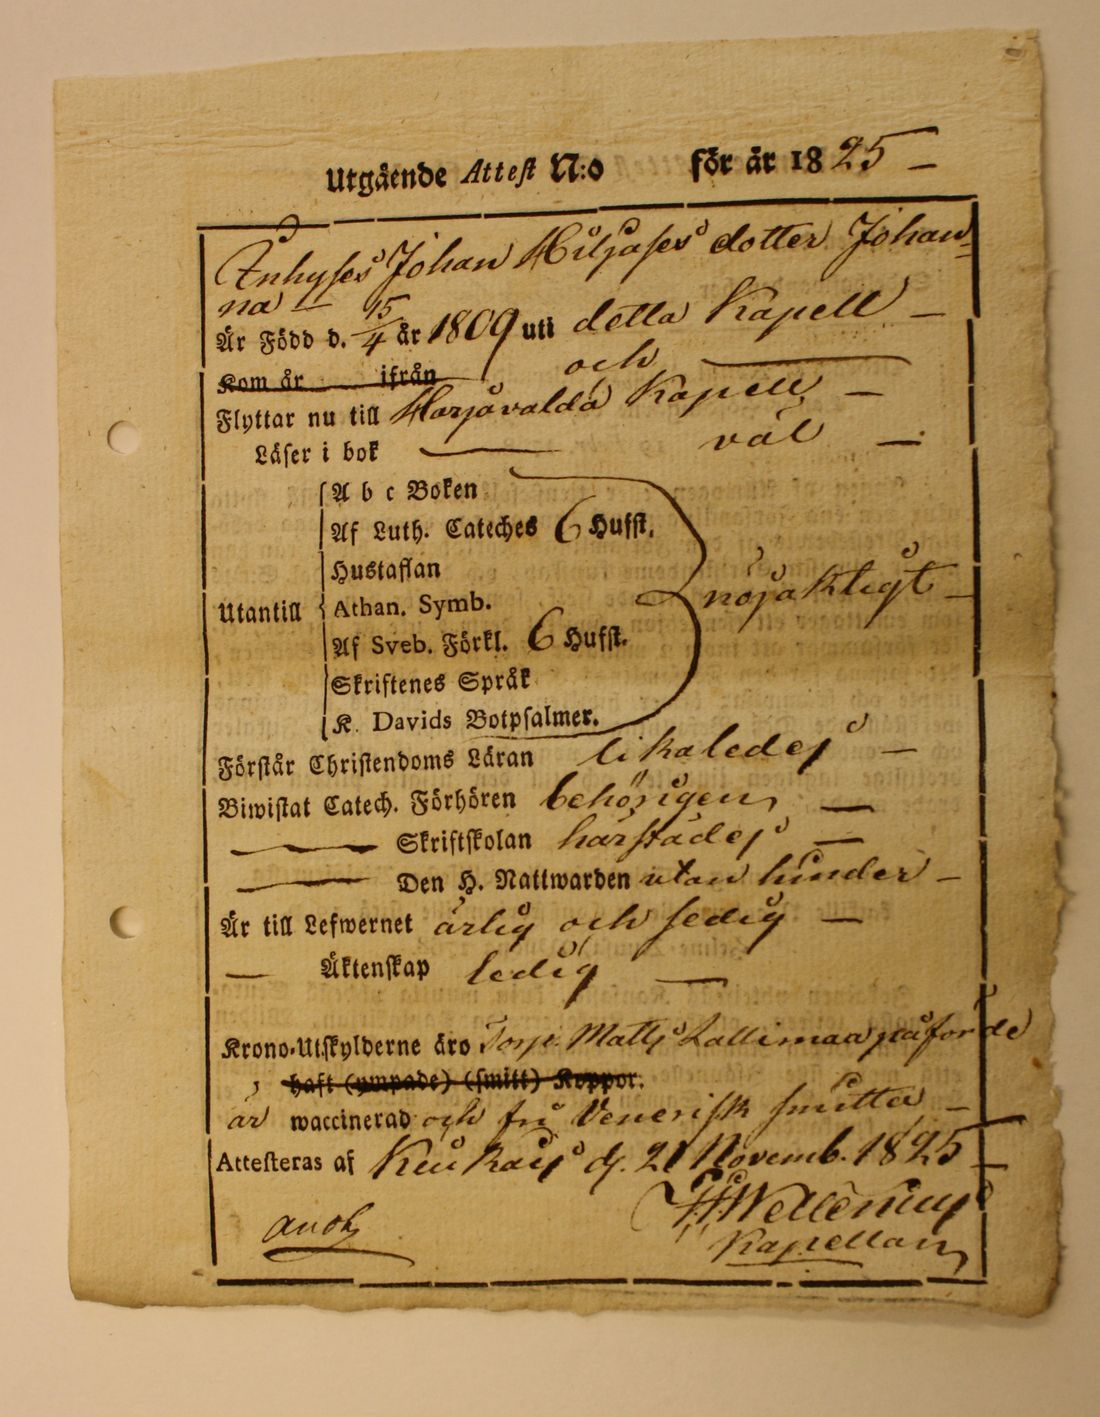 Utgående Attest N:o för år 1825 —
Inhyses Johan Hiljases dotter Johan-
na — 
Är Född d. 15/4 år 1809 uti detta Kapell —
Kom år ifrån och
Flyttar nu till Harjavalda Kapell —
Läser i bok — väl —
A b c Boken
Af Luth. Cateches 6 Hufst.
Hustaflan
Utantill Athan. Symb. nöjaktigt —
Af Sveb. Förkl. 6 Hufst.
Skriftenes Språk
K. Davids Botpsalmer.
Förstår Christendoms Läran likaledes —
Biwistat Catech. Förhören behörigen —
— Skriftskolan härstädes —
— Den H. Nattwarden utan hinder —
Är till Lefwernet ärlig och sedig —
— Äktenskap ledig —
Krono-Utskylderne äro Torp. Matts Lallimaa påförde
haft (ympade) (smitt) Koppor.
är waccinerad och fri Venerisk smitta —
Attesteras af Keukais d. 21 Novemb. 1825 —
Wellenius
Kapellan